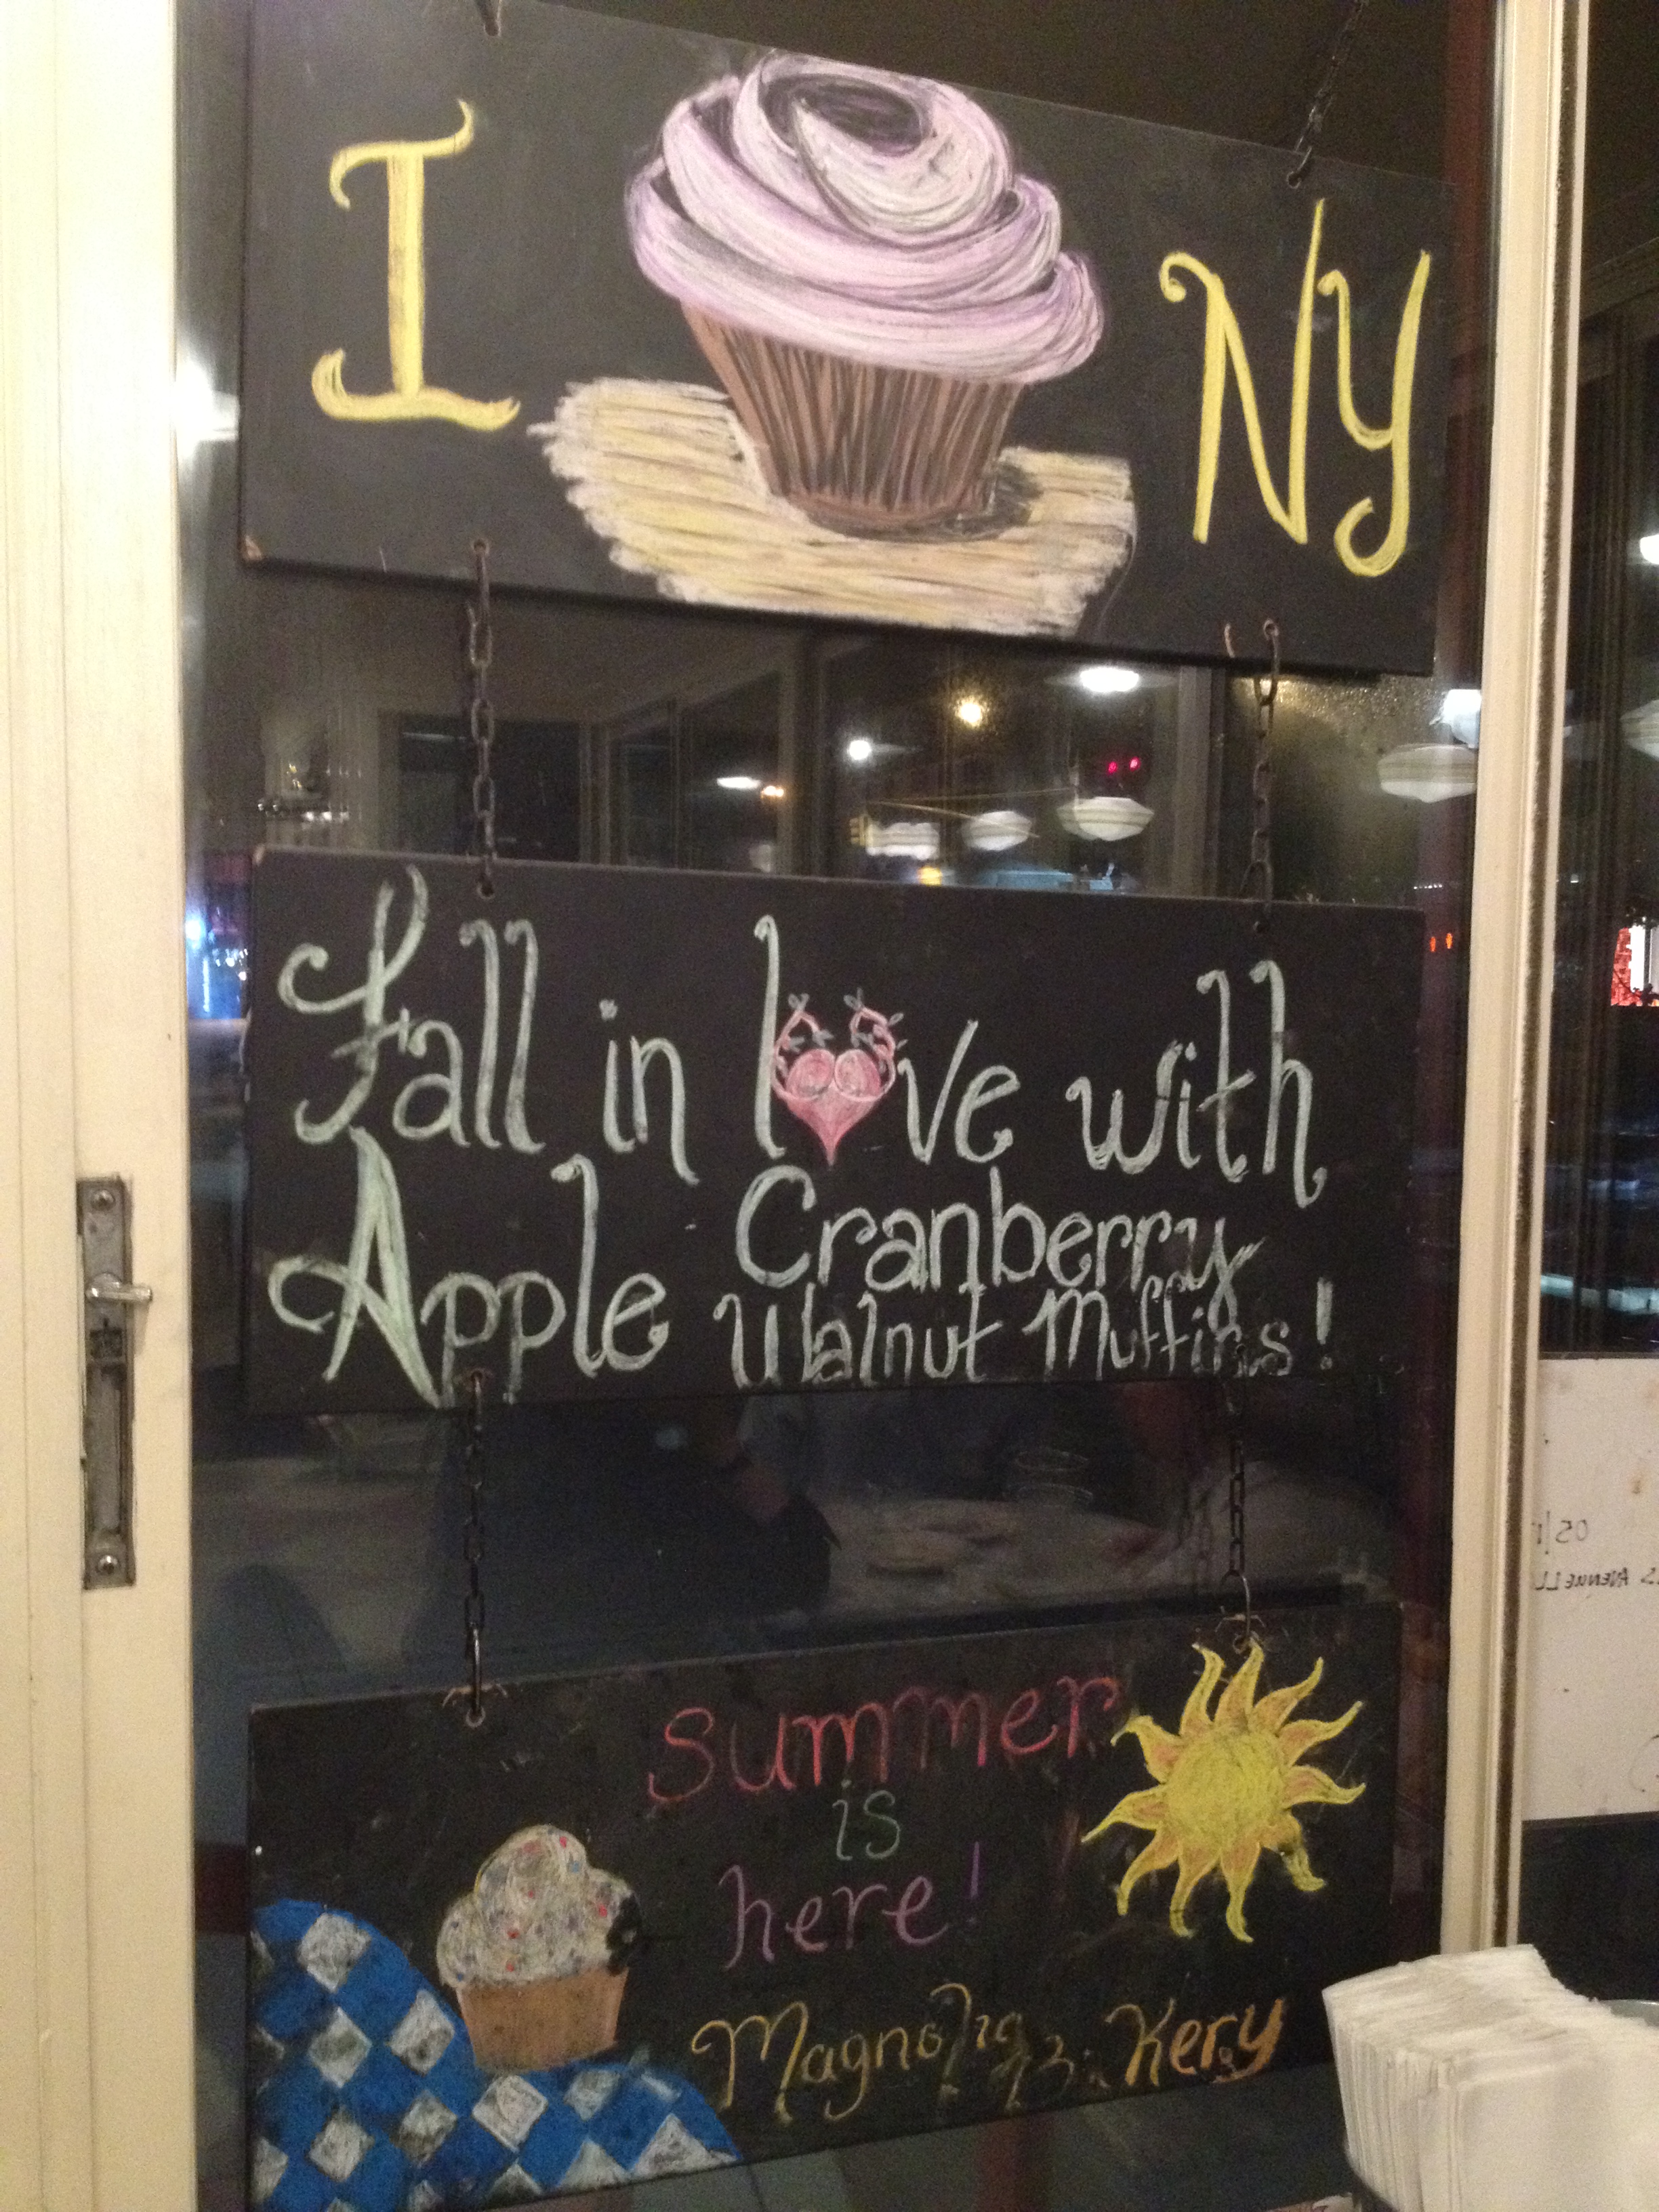 I NY
Fall in love with
Apple Cranberry
Walnut Muffins!
Summer
is
here!
Magnolia Bakery